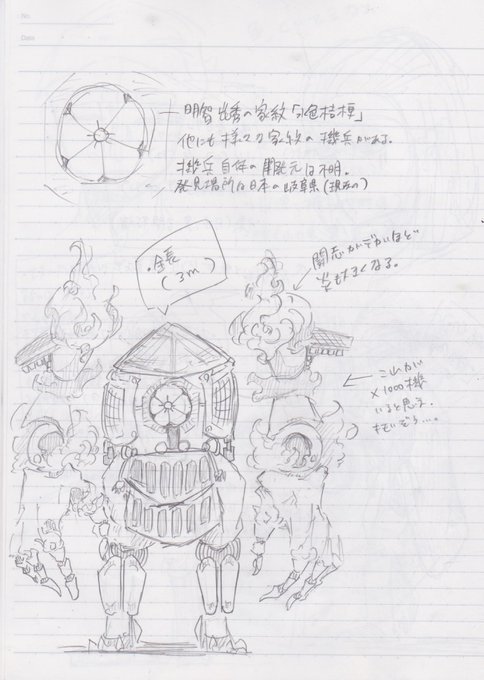 No.
Date
明智光秀の家紋「水色桔梗」
他にも様々な家紋の機兵がある。
機兵自体の開発元は不明。
発見場所は日本の岐阜県(現在の)
・全長
(3m)
闘志がデカいほど
炎もデカくなる。
これが
×1000機
いると思う。